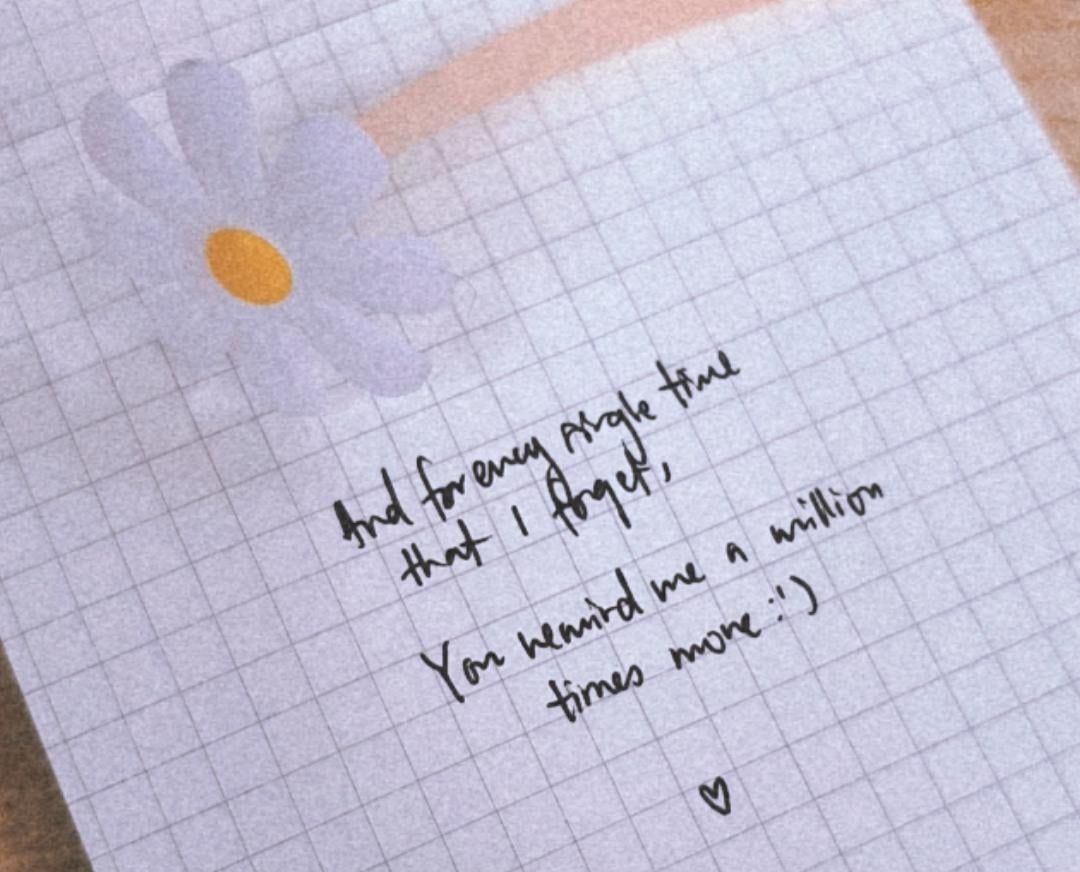 And for every single time
that I forget,
You remind me a million
times more :')
♡